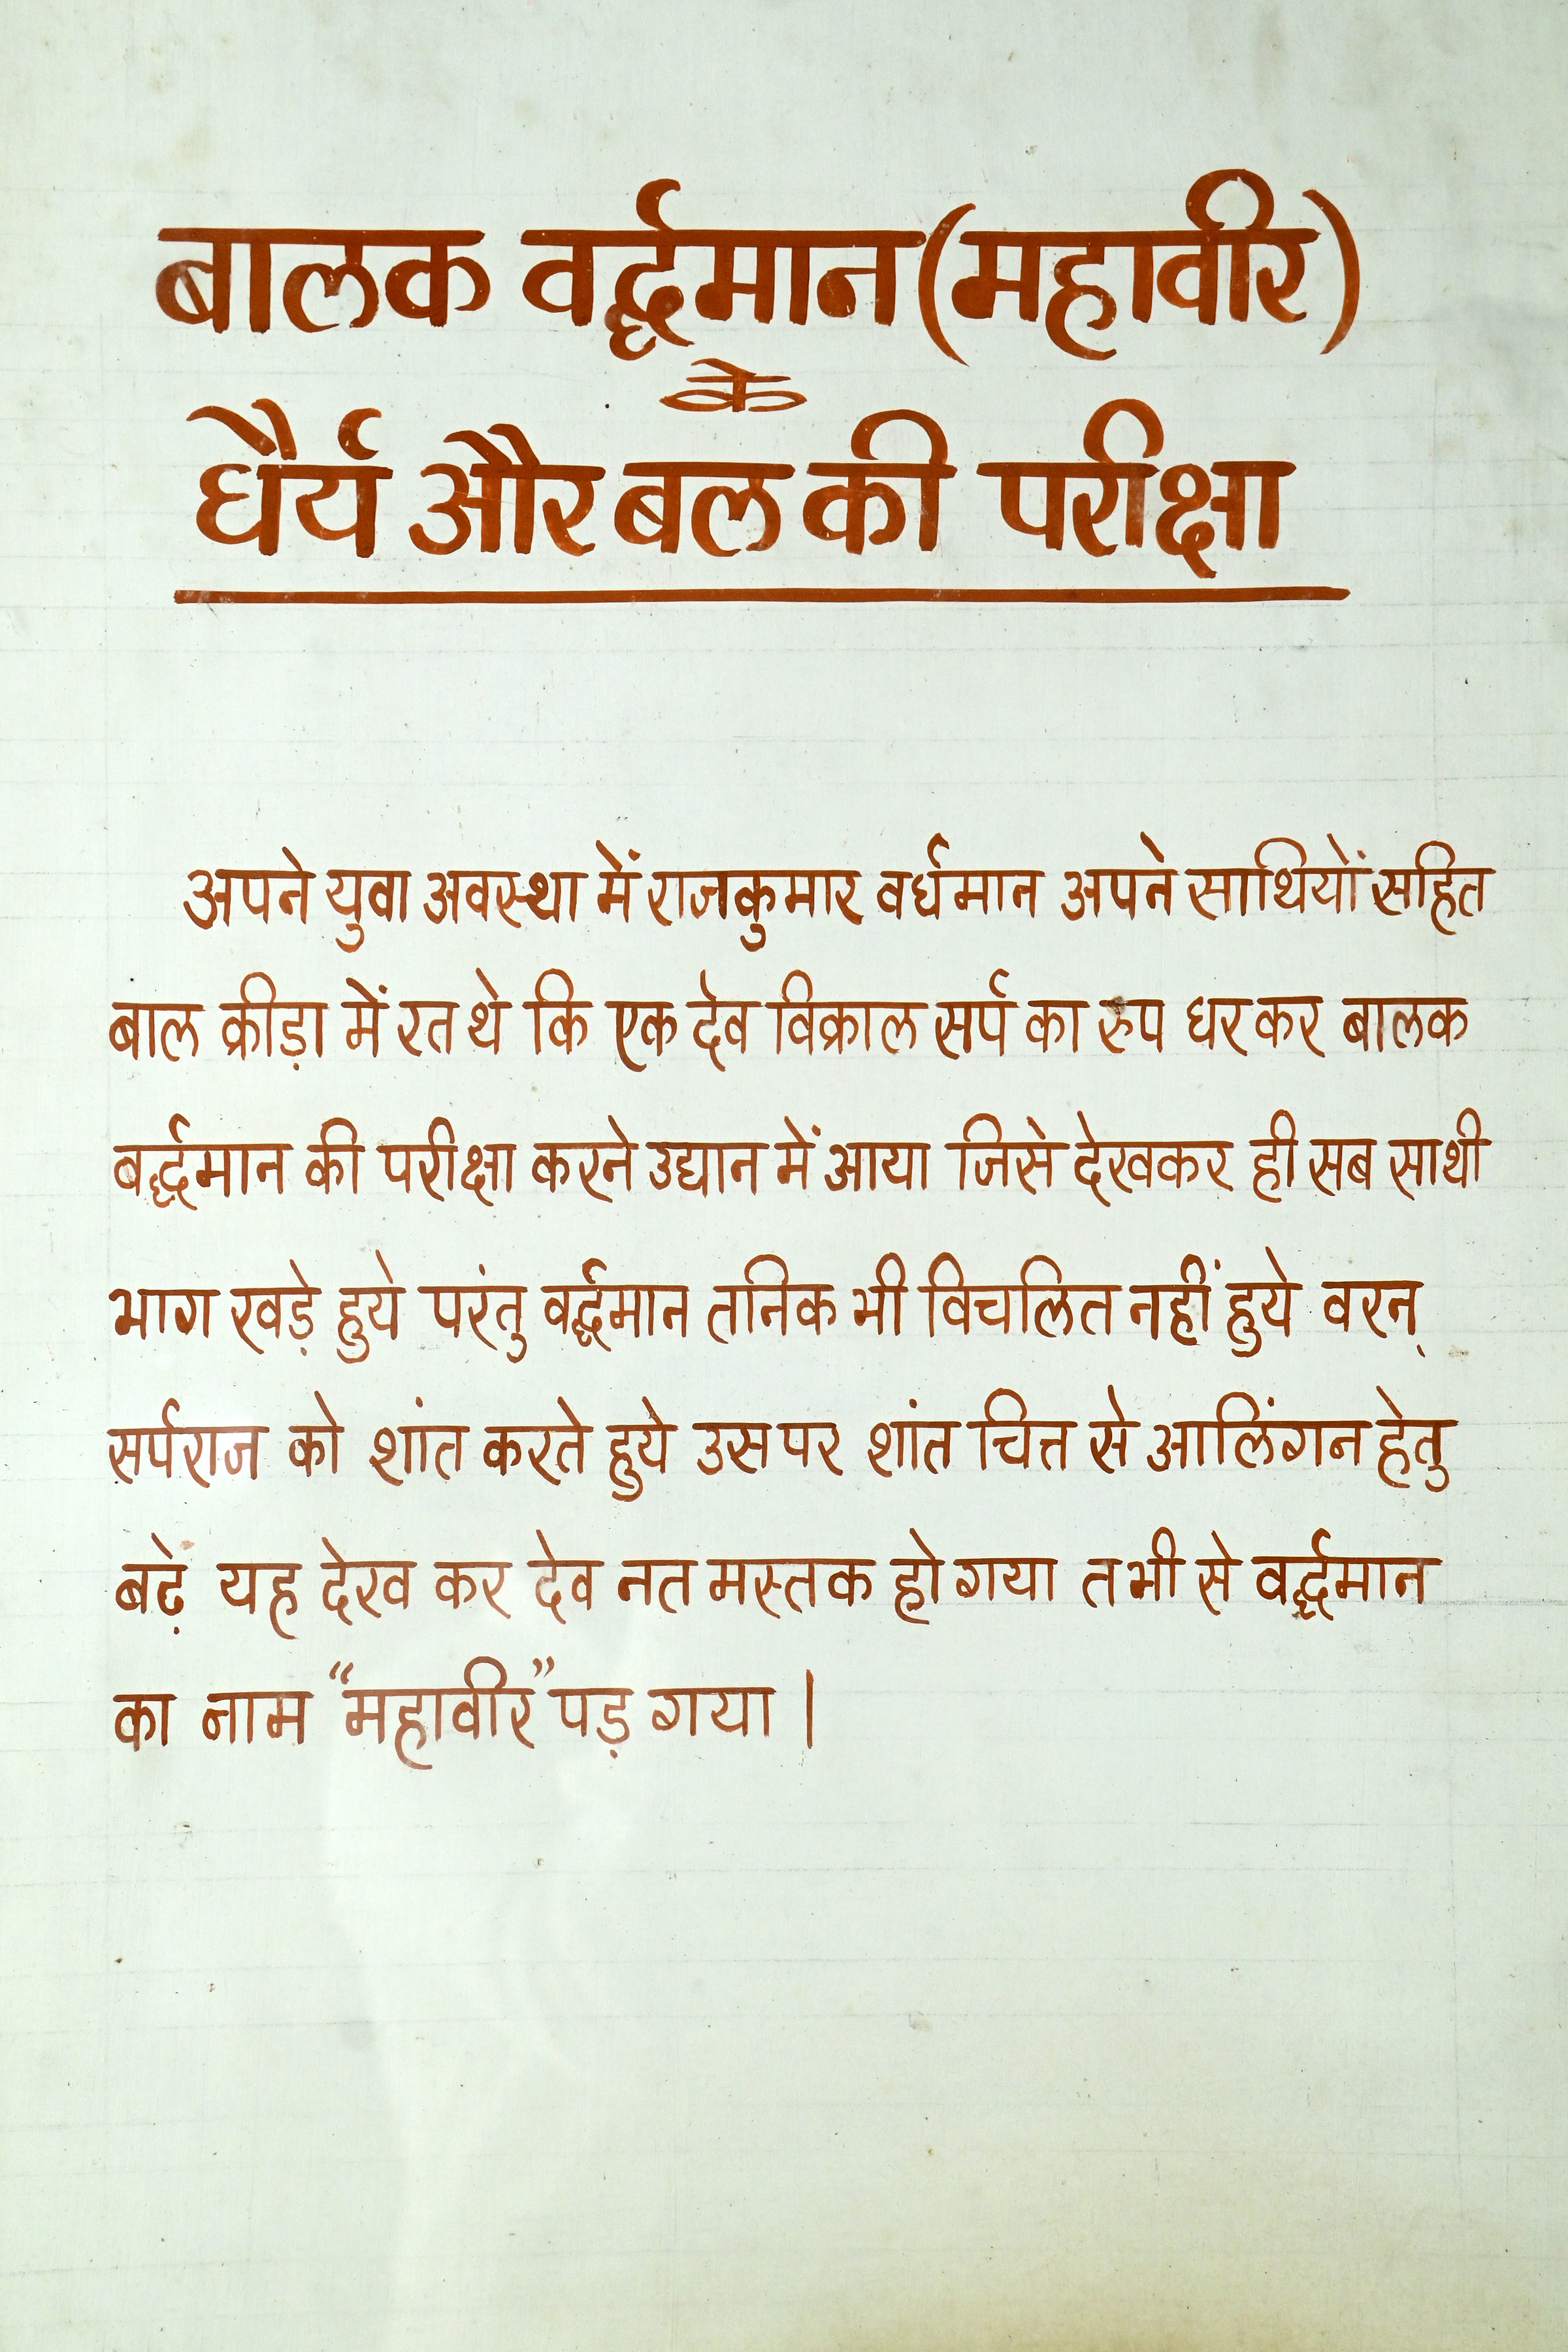 बालक वर्द्धमान (महावीर)
के
धैर्य और बल की परीक्षा
अपने युवा अवस्था में राजकुमार वर्धमान अपने साथियों सहित
बाल क्रीड़ा में रत थे कि एक देव विक्राल सर्प का रुप धर कर बालक
बर्द्धमान की परीक्षा करने उद्यान में आया जिसे देखकर ही सब साथी
भाग खड़े हुये परंतु वर्द्धमान तनिक भी विचलित नहीं हुये वरन्
सर्पराज को शांत करते हुये उस पर शांत चित्त से आलिंगन हेतु
बढ़ें यह देख कर देव नत मस्तक हो गया तभी से वर्द्धमान
का नाम “महावीर” पड़ गया |